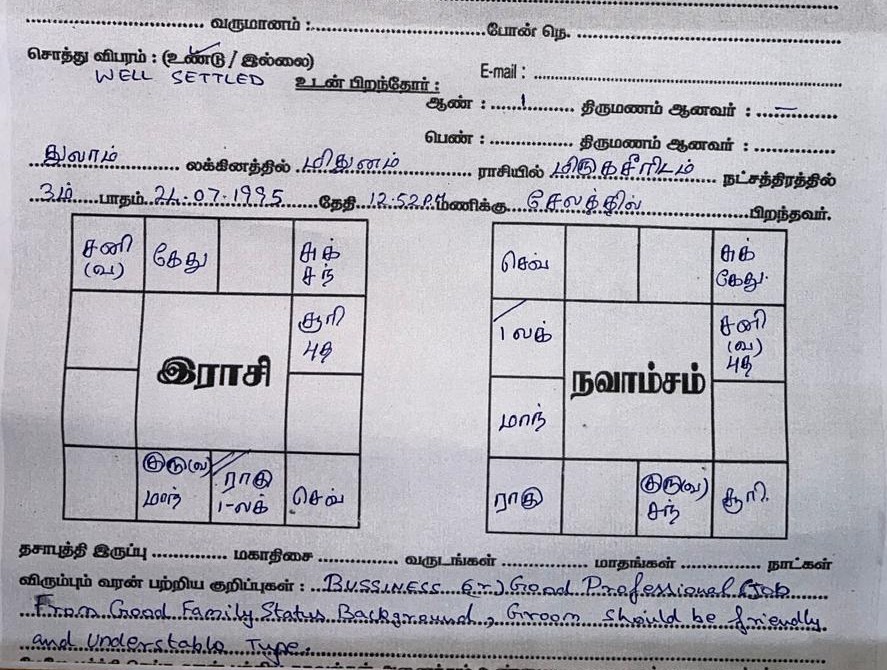 வருமானம் : போன் நெ.
சொத்து விபரம் : (உண்டு / இல்லை)
WELL SETTLED உடன் பிறந்தோர் : E-mail :
ஆண் : 1 திருமணம் ஆனவர் : –
பெண் : திருமணம் ஆனவர் :
துலாம் லக்கினத்தில் மிதுனம் ராசியில் மிருகசீரிடம் நட்சத்திரத்தில்
3ம் பாதம் 24.07.1995 தேதி 12.52 P.M மணிக்கு சேலத்தில் பிறந்தவர்.
சனி (வ) கேது சுக் சந்
சூரி புத
இராசி
குரு(வ) மாந் ராகு 1-லக் செவ்
செவ் சுக் கேது.
1 லக் சனி (வ) புத
நவாம்சம்
மாந்
ராகு குரு(வ) சந் சூரி.
தசாபுத்தி இருப்பு மகாதிசை வருடங்கள் மாதங்கள் நாட்கள்
விரும்பும் வரன் பற்றிய குறிப்புகள் : BUSSINESS (or) Good Professional Job
From Good Family Status Background, Groom should be friendly
and Understable Type.